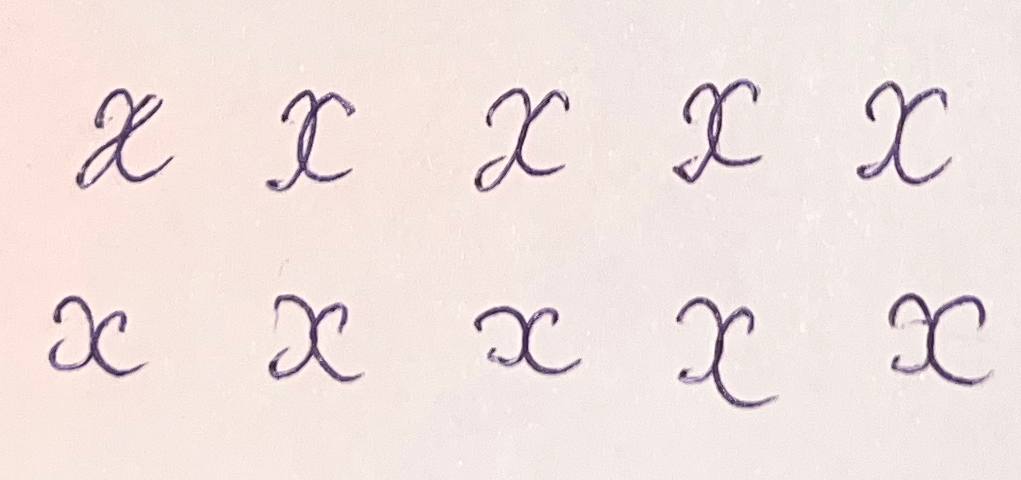 x x x x x
x x x x x